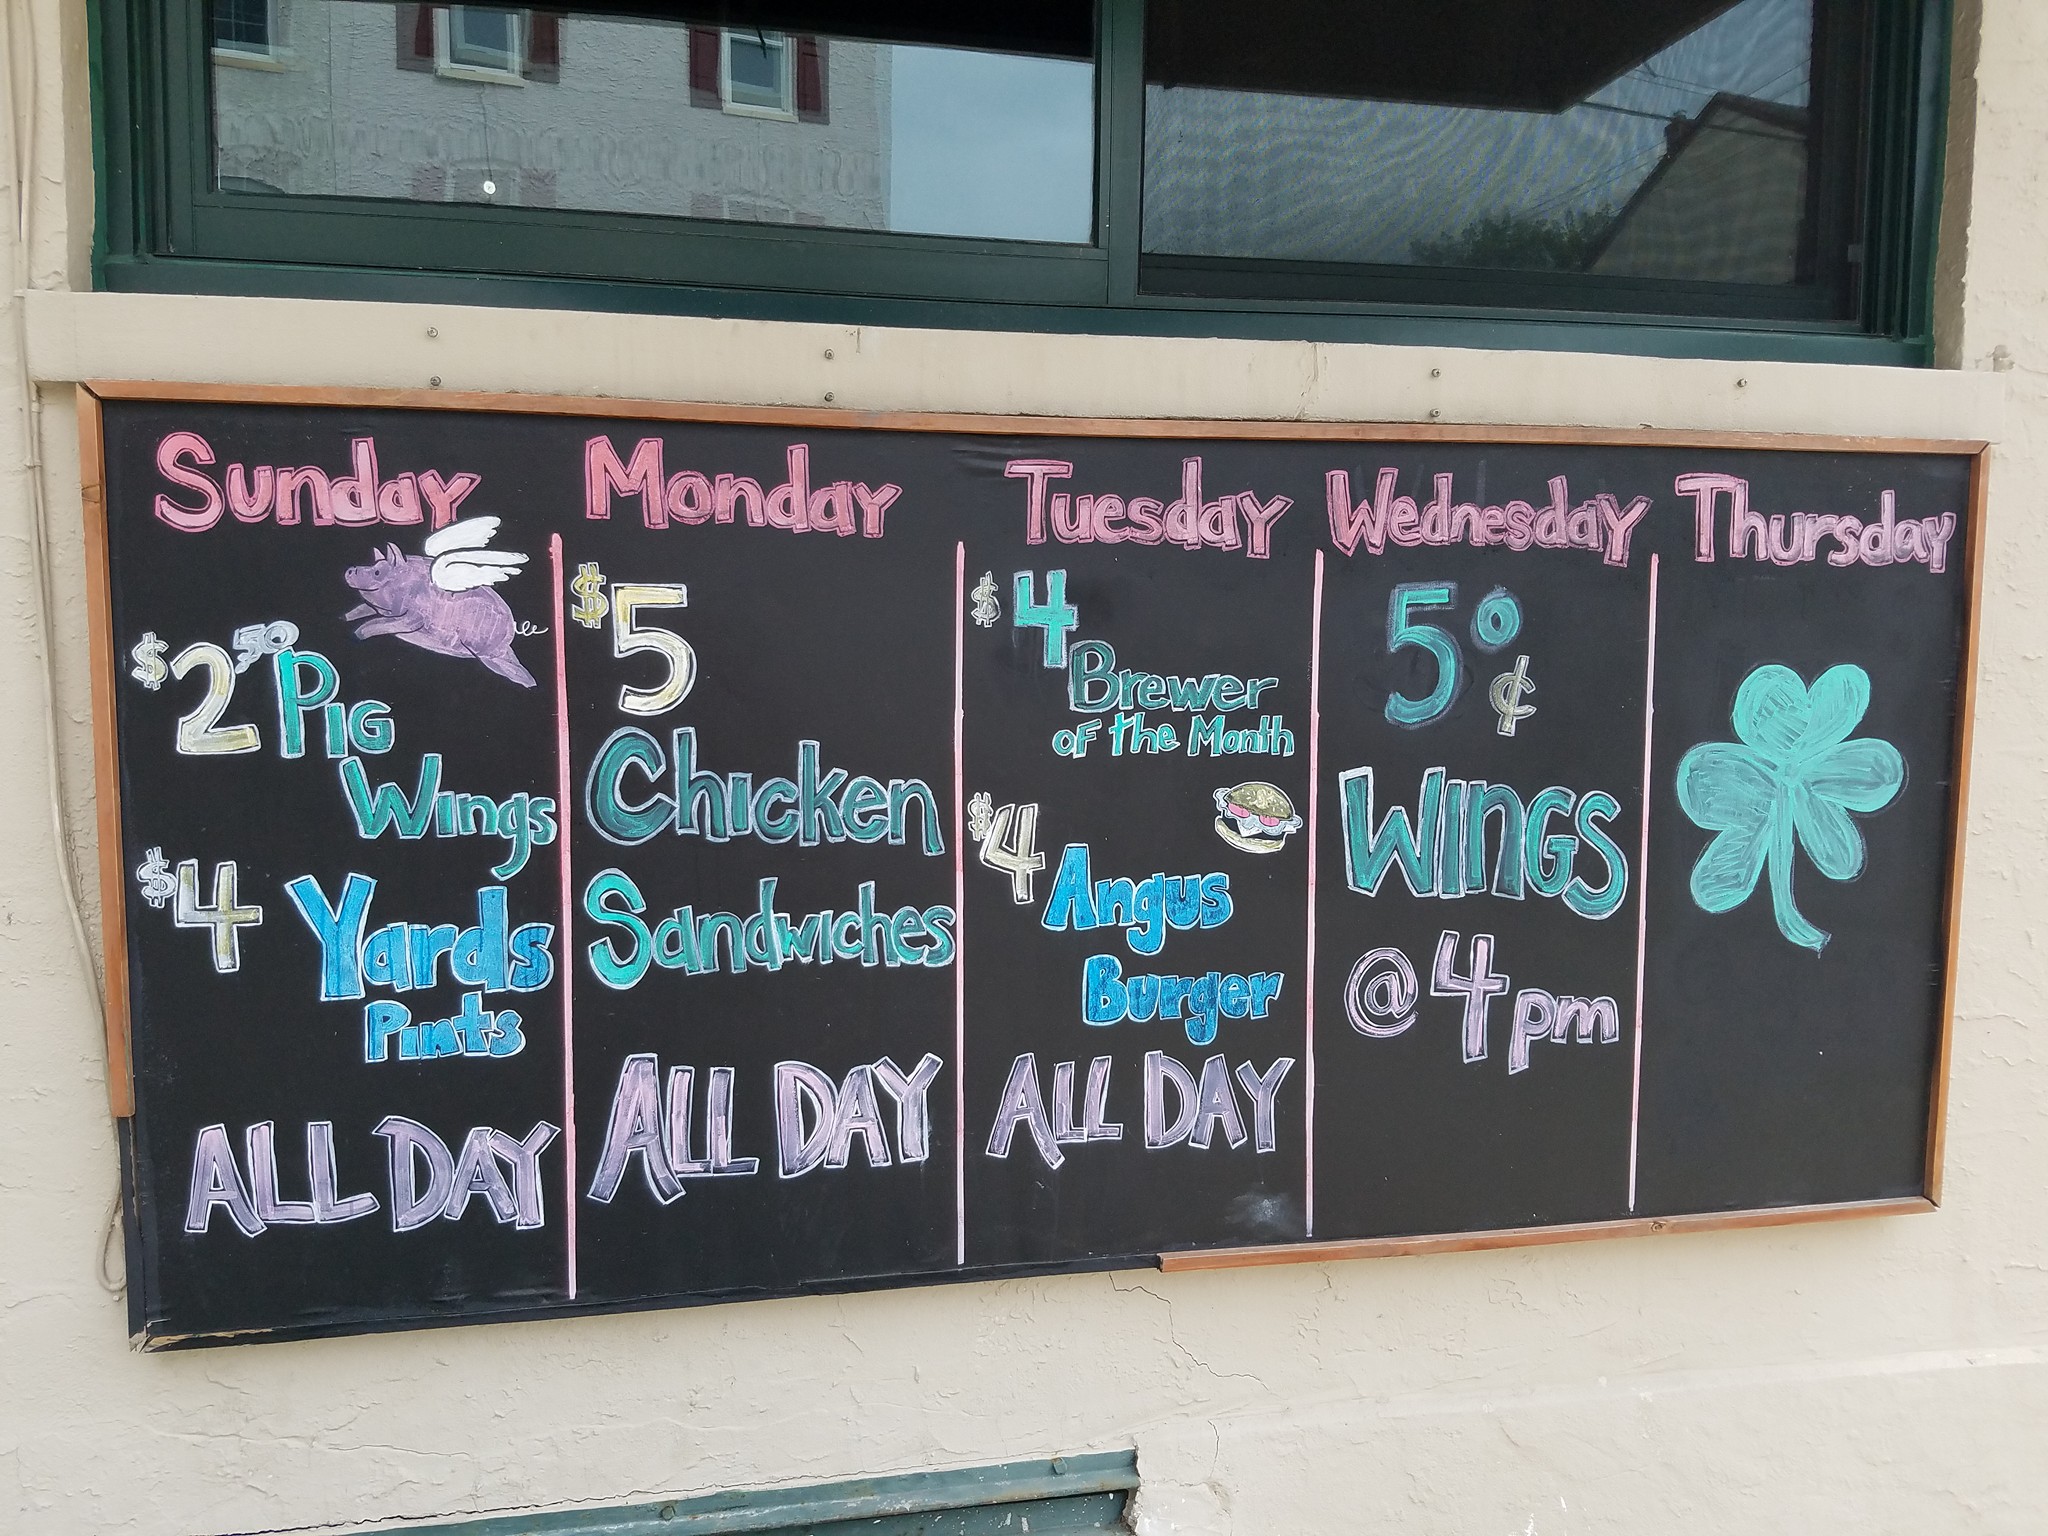 Sunday
$2 50 Pig
Wings
$4 Yards
Pints
ALL DAY
Monday
$5
Chicken
Sandwiches
ALL DAY
Tuesday
$4
Brewer
of the Month
$4 Angus
Burger
ALL DAY
Wednesday
50¢
WINGS
@4pm
Thursday